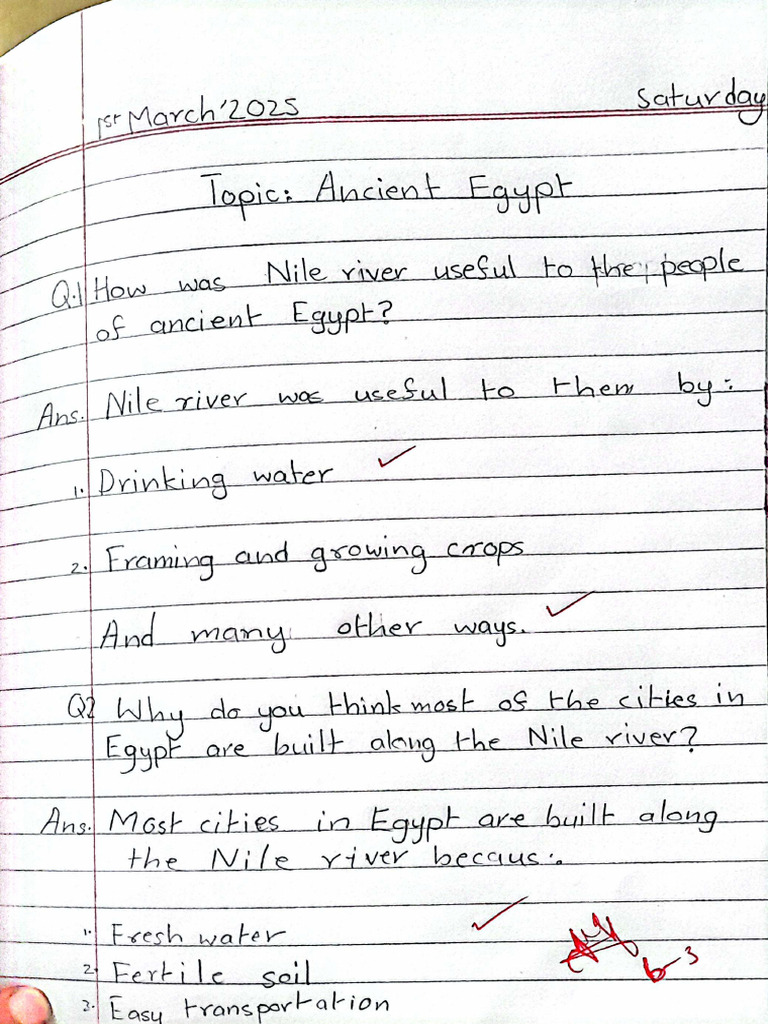 1st March'2025 Saturday
Topic: Ancient Egypt
Q.1 How was Nile river useful to the people
of ancient Egypt?
Ans. Nile river was useful to them by:
1. Drinking water
2. Framing and growing crops
And many other ways.
Q2 Why do you think most of the cities in
Egypt are built along the Nile river?
Ans. Most cities in Egypt are built along
the Nile river becaus:.
1. Fresh water
2. Fertile soil
6-3
3. Easy transportation